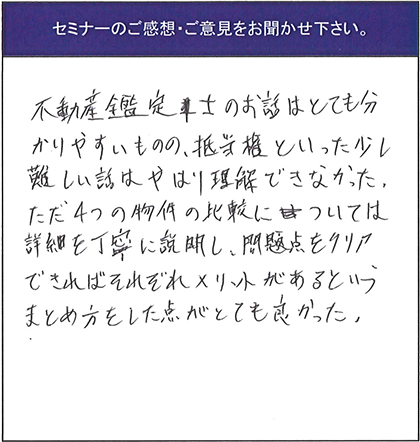 セミナーのご感想・ご意見をお聞かせ下さい。
不動産鑑定士のお話はとても分
かりやすいものの、抵当権といった少し
難しい話はやはり理解できなかった。
ただ4つの物件の比較については
詳細を丁寧に説明し、問題点をクリア
できればそれぞれメリットがあるという
まとめ方をした点がとても良かった。